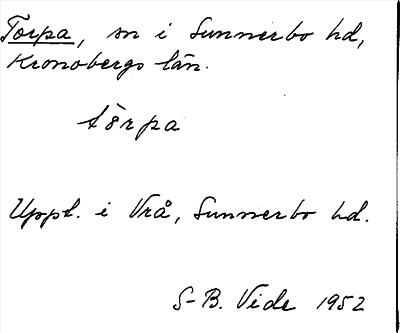 Torpa, sn i Sunnerbo hd,
Kronobergs län.
tòrpa
Uppt. i Vrå, Sunnerbo hd.
S-B. Vide 1952